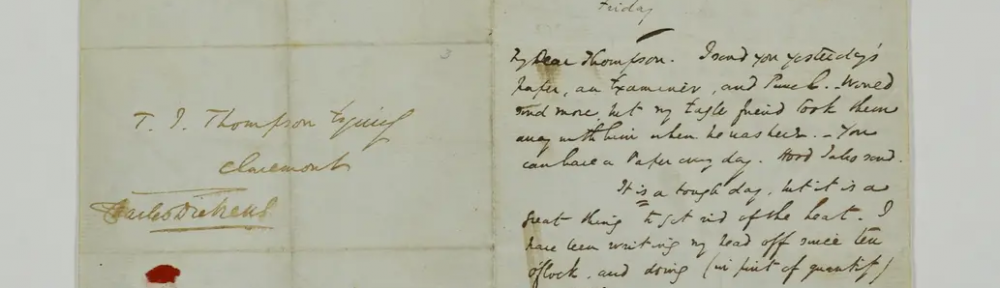 T. J. Thompson Esquire
Claremont
Charles Dickens
3
Friday
My Dear Thompson. I send you yesterday's
Paper, an Examiner, and Punch. Would
send more, but my Eagle friend took them
away with him when he was here. - You
can have a Paper every day.
It is a tough day, but it is a
great thing to get rid of the heat. I
have been writing my head off since ten
o'Clock, and doing (in point of quantity)